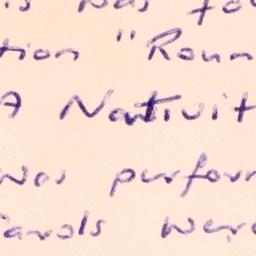 was
tion "Roun
A Nativit
was perfor
Carols were